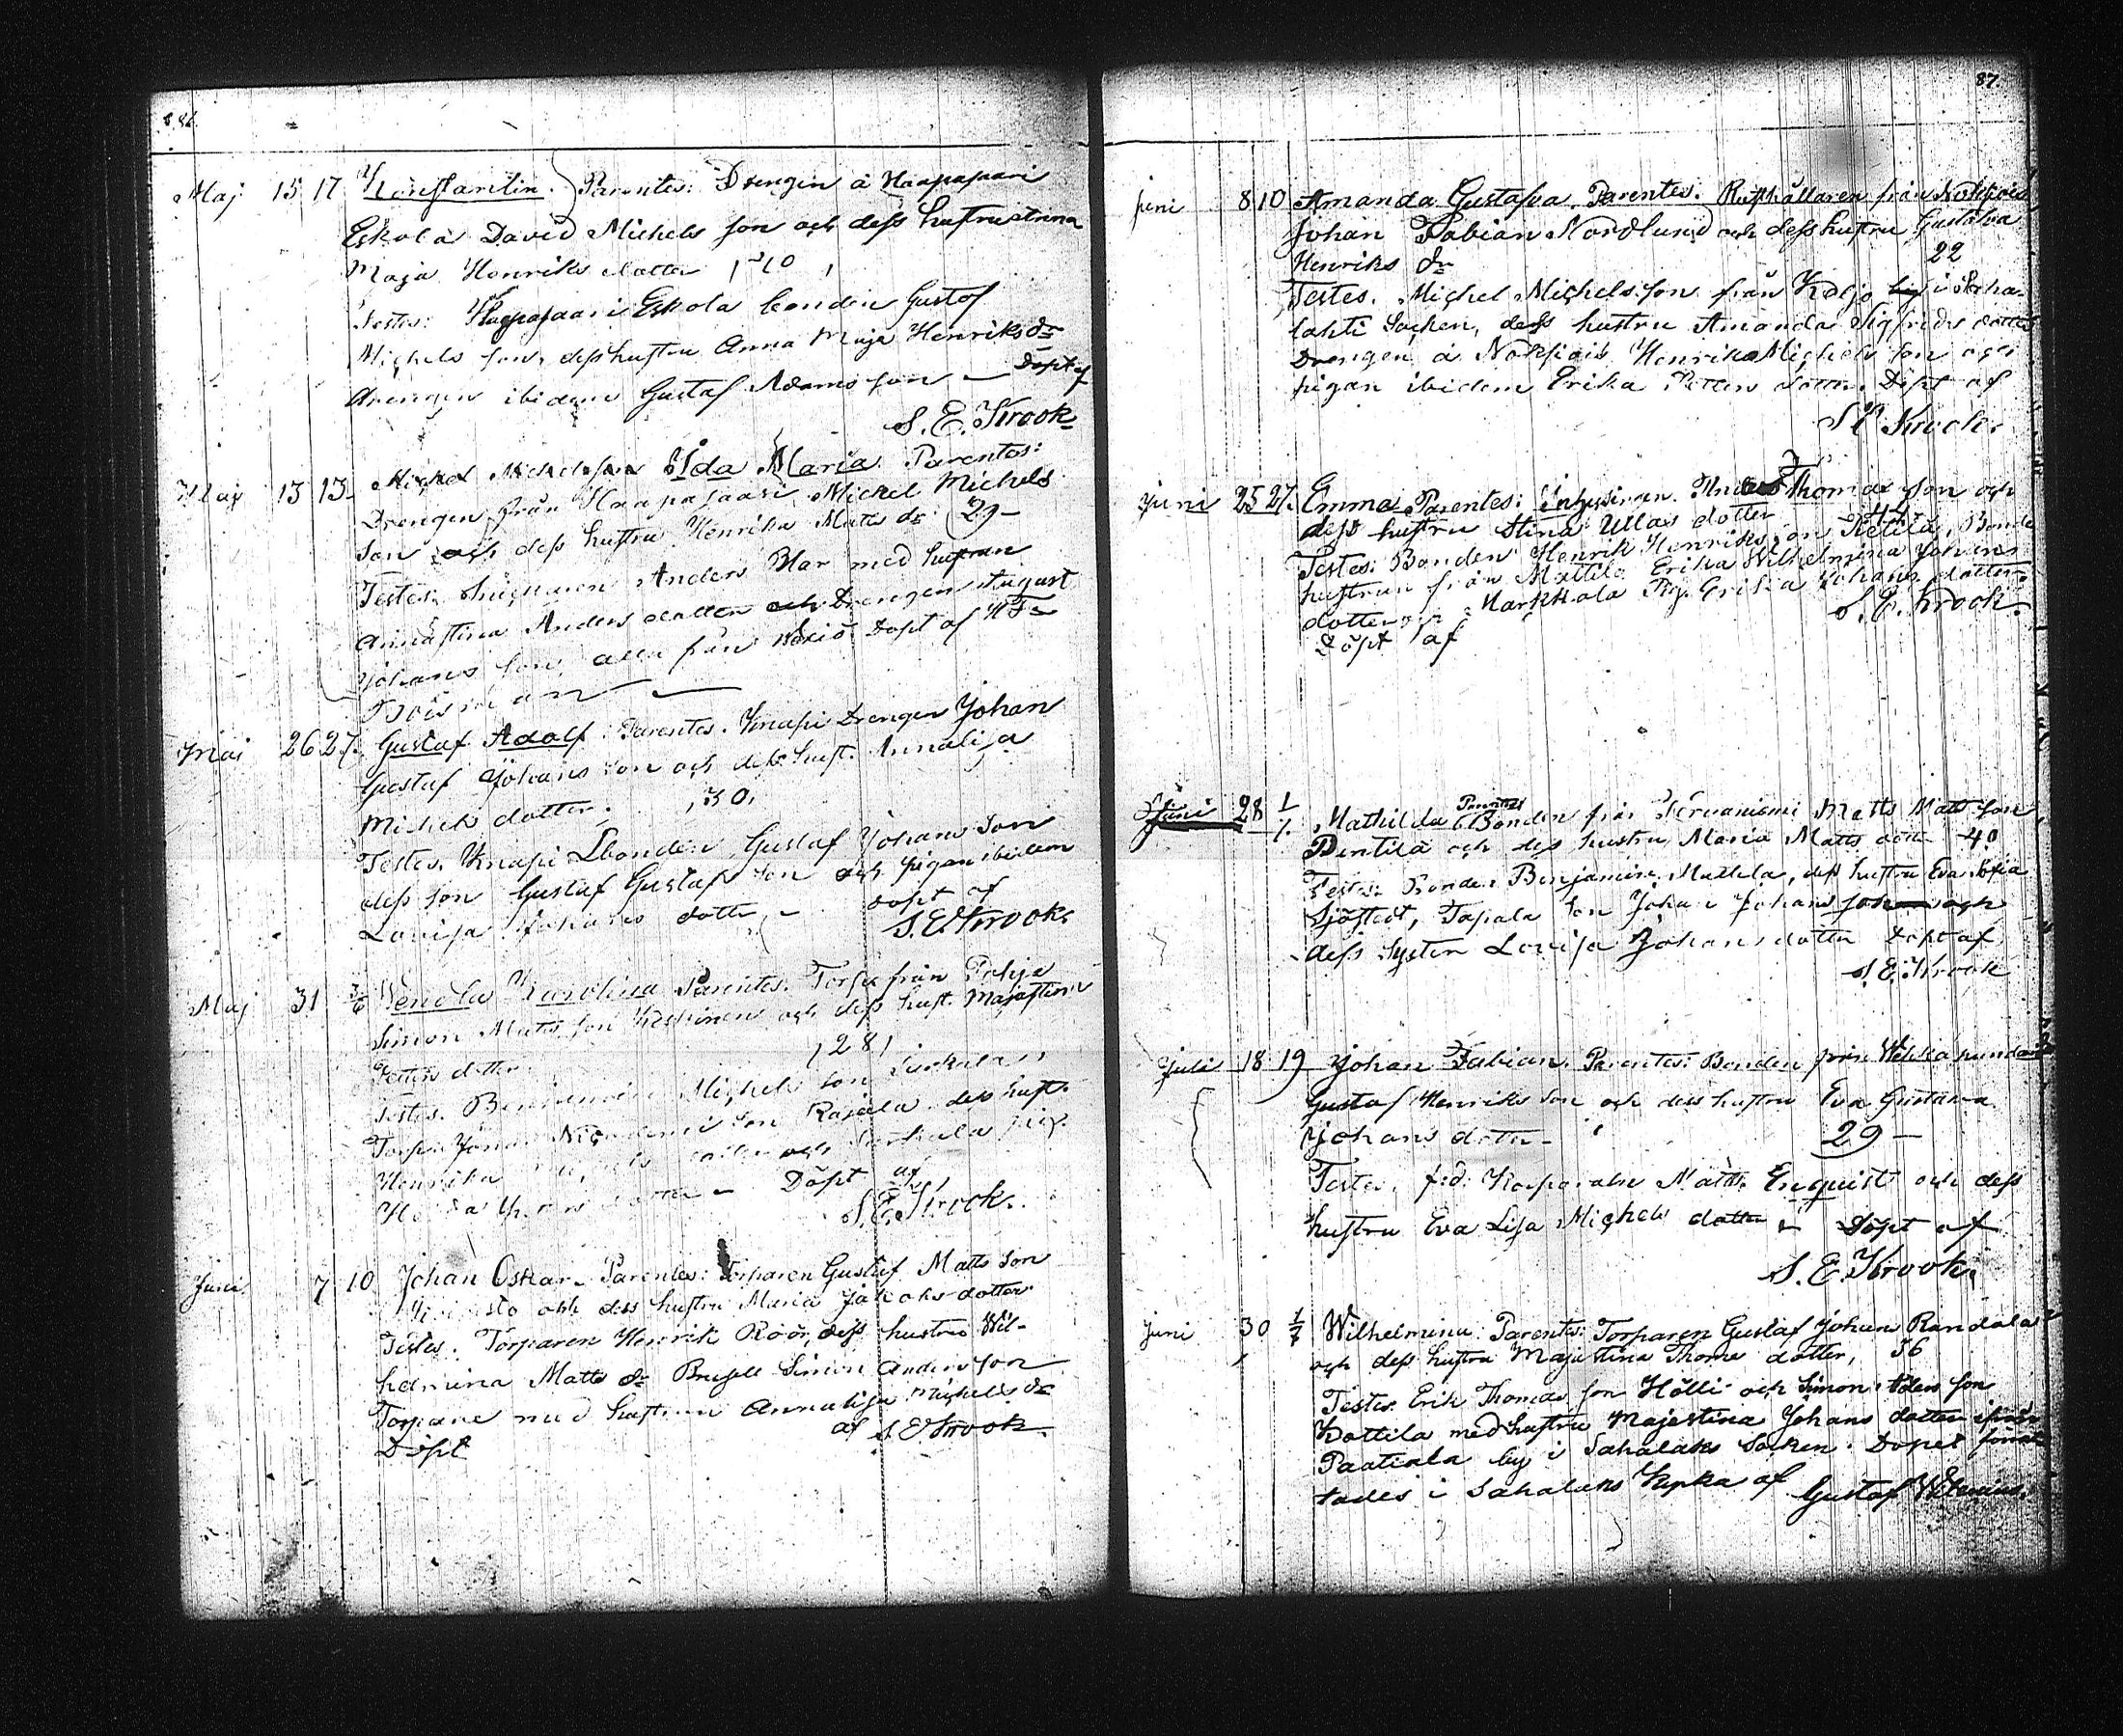 86.
Maj 15 17 Konstantin. Parentes: Drengin å Haapasaari
Eskola David Michels son och dess hustru Stina
Maja Henriks dotter
Testes: Haapasaari Eskola bonden Gustaf
Michels son, dess hustru Anna Maja Henriks dr
drengen ibidem Gustaf Adams son — Döpt af
S. E. Krook
Maj 13 13 Michel Michelsson Ida Maria. Parentes:
Drengen från Haapasaari Michel Michels
son och dess hustru Henrika Matts dr. 29 —
Testes: Anders Mar med hustrun
Annastina Anders dotter och Drengen August
Johans son, alla från Döpt af
Maj 26 27. Gustaf Adolf. Parentes. Knapi Drengen Johan
Gustaf Johans son och dess hust. Annalisa
Michels dotter. 30.
Testes. Knapi bonden Gustaf Johans son
dess son Gustaf Gustafs son och pigan ibidem
Lovisa Johans dotter, — döpt af
S. E. Krook
Maj 31 3/6 Karolina Parentes. Torp. från Pohja
Simon Matts son och dess hust. Majastina
Petters dotter. 28
Testes. Michels son
Torp. son Rajala dess hust.
Henrika och pig.
dotter — Döpt af
S. E. Krook.
Juni 7 10 Johan Oskar. Parentes: Torparen Gustaf Matts son
och dess hustru Maria Jakobs dotter
Testes. Torparen Henrik Röör, dess hustru Wil-
helmina Matts dr Simon Anders son
Torpare med hustrun Annalisa Michels dr
Döpt af S. E. Krook
87.
juni 8 10 Amanda Gustafva. Parentes. från
Johan Fabian Nordlund och dess hustru Gustafva
Henriks dr 22
Testes. Michel Michels son från i Saha-
lahti Socken, dess hustru Amanda Sigfrids dotter
Drengen å Henrik Michels son och
pigan ibidem Erika Petters dotter. Döpt af
S. E. Krook.
Juni 25 27. Emma Parentes: Thomas son och
dess hustru Stina Ullas dotter 44
Testes: Bonden Henrik Henriks son Ketilä, Bonde
hustrun från Mattila Erika Wilhelmina Johans
dotter Markkola Pig. Erika Johans dotter.
Döpt af S. E. Krook.
Juni 28 1/7. Mathilda Parentes Bonden från Matts Matts son
Pentilä och dess hustru Maria Matts dotter 40
Testes: Bonden Benjamin Mattila, dess hustru Eva Sofia
Sjöstedt, Tapala son Johan Johans son och
dess Syster Lovisa Johans dotter Döpt af
S. E. Krook
Juli 18 19 Johan Fabian. Parentes: Bonden från
Gustaf Henriks son och dess hustru Eva Gustava
Johans dotter — 29 —
Testes. f.d. Matts Enquist och dess
hustru Eva Lisa Michels dotter — Döpt af
S. E. Krook.
Juni 30 1/7 Wilhelmina. Parentes: Torparen Gustaf Johan Randala
och dess hustru Majastina Thoms dotter, 36
Testes. Erik Thomas son Hölli och Simon son
Kottila med hustru Majastina Johans dotter ifrån
Paatiala by i Sahalaks Socken. Döpet förrät
tades i Sahalaks Kyrka af Gustaf